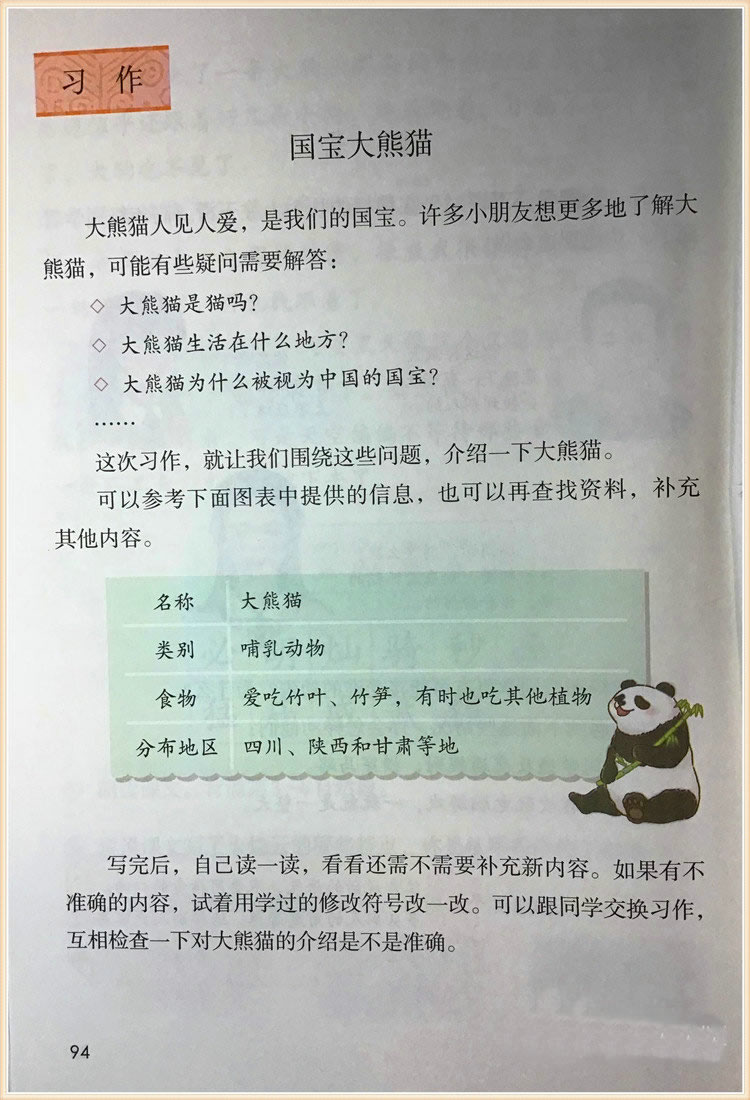 习 作
国宝大熊猫
大熊猫人见人爱，是我们的国宝。许多小朋友想更多地了解大
熊猫，可能有些疑问需要解答：
◇ 大熊猫是猫吗？
◇ 大熊猫生活在什么地方？
◇ 大熊猫为什么被视为中国的国宝？
……
这次习作，就让我们围绕这些问题，介绍一下大熊猫。
可以参考下面图表中提供的信息，也可以再查找资料，补充
其他内容。
名称 大熊猫
类别 哺乳动物
食物 爱吃竹叶、竹笋，有时也吃其他植物
分布地区 四川、陕西和甘肃等地
写完后，自己读一读，看看还需不需要补充新内容。如果有不
准确的内容，试着用学过的修改符号改一改。可以跟同学交换习作，
互相检查一下对大熊猫的介绍是不是准确。
94